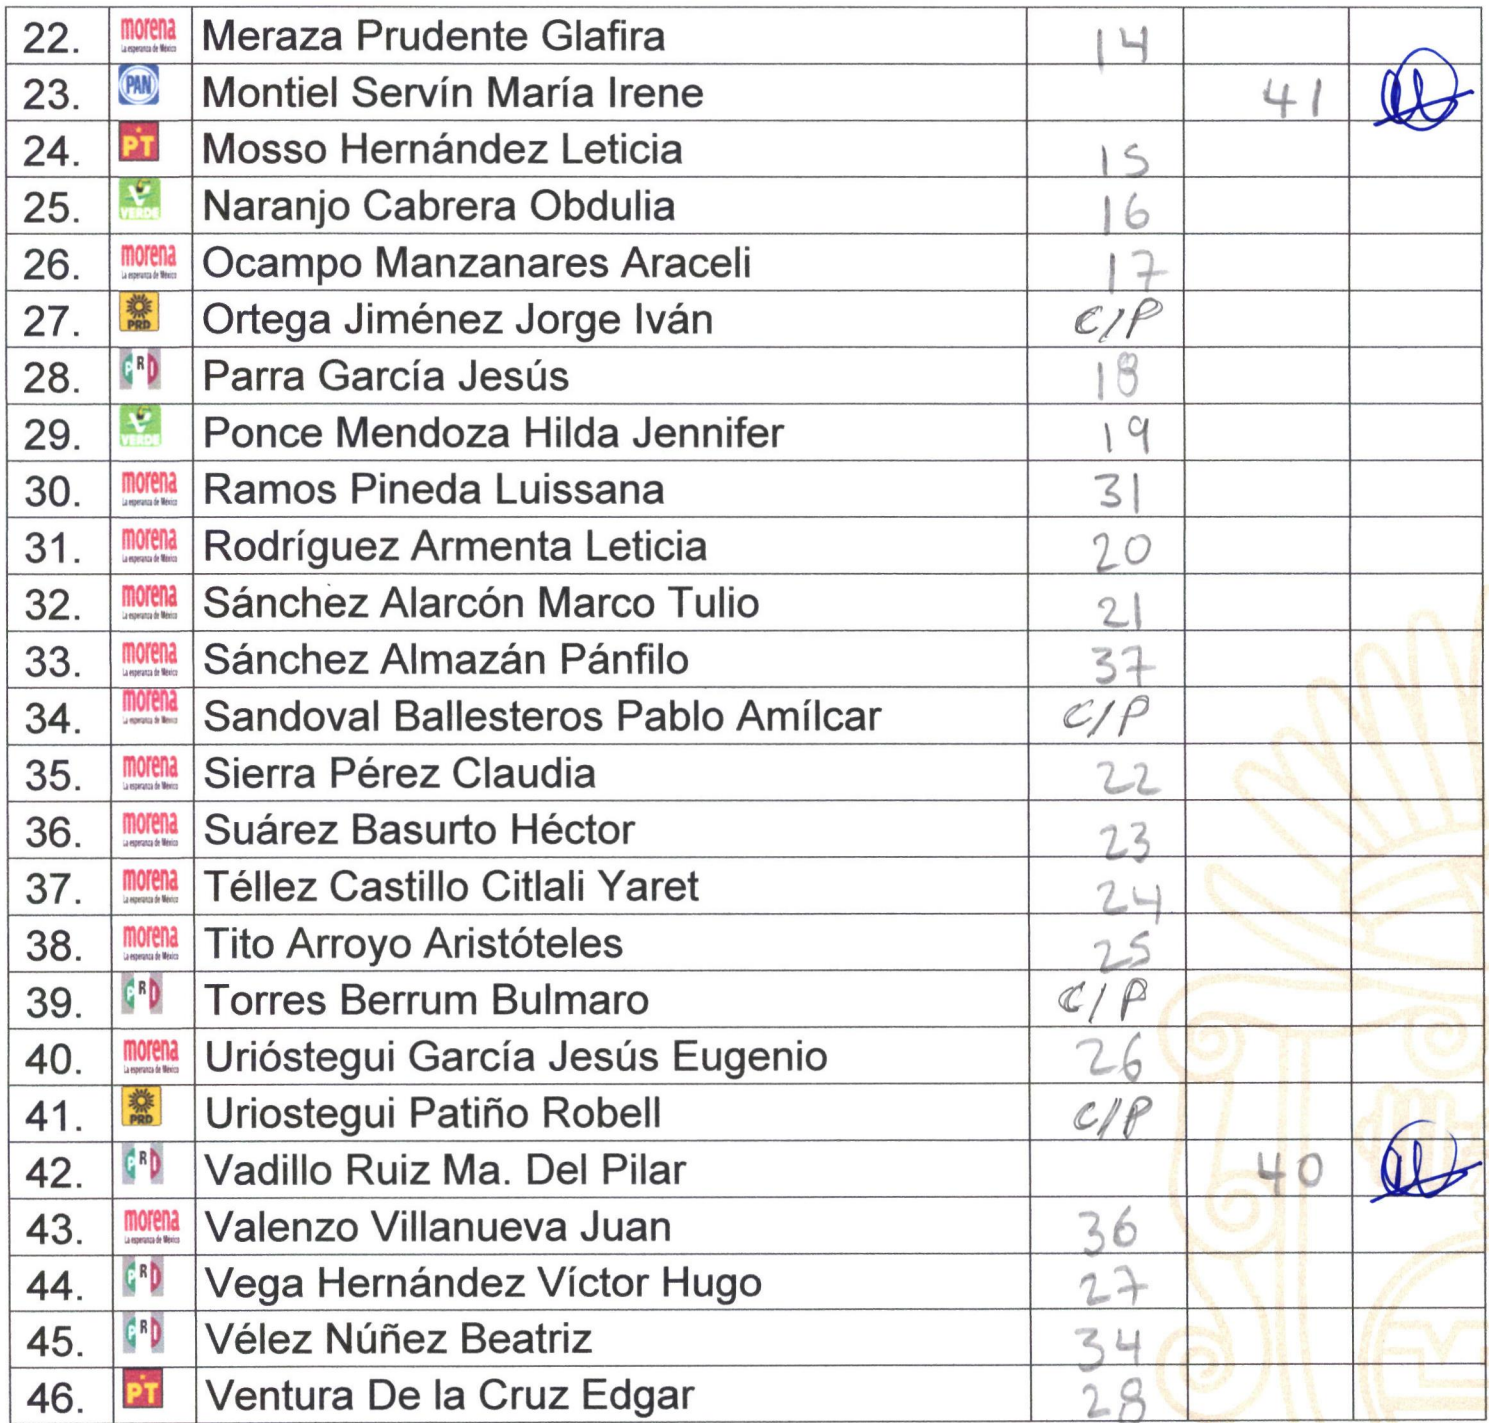 22. morena La esperanza de México Meraza Prudente Glafira 14
23. PAN Montiel Servín María Irene 41
24. PT Mosso Hernández Leticia 15
25. VERDE Naranjo Cabrera Obdulia 16
26. morena La esperanza de México Ocampo Manzanares Araceli 17
27. PRD Ortega Jiménez Jorge Iván C/P
28. PRI Parra García Jesús 18
29. VERDE Ponce Mendoza Hilda Jennifer 19
30. morena La esperanza de México Ramos Pineda Luissana 31
31. morena La esperanza de México Rodríguez Armenta Leticia 20
32. morena La esperanza de México Sánchez Alarcón Marco Tulio 21
33. morena La esperanza de México Sánchez Almazán Pánfilo 37
34. morena La esperanza de México Sandoval Ballesteros Pablo Amílcar C/P
35. morena La esperanza de México Sierra Pérez Claudia 22
36. morena La esperanza de México Suárez Basurto Héctor 23
37. morena La esperanza de México Téllez Castillo Citlali Yaret 24
38. morena La esperanza de México Tito Arroyo Aristóteles 25
39. PRI Torres Berrum Bulmaro C/P
40. morena La esperanza de México Urióstegui García Jesús Eugenio 26
41. PRD Uriostegui Patiño Robell C/P
42. PRI Vadillo Ruiz Ma. Del Pilar 40
43. morena La esperanza de México Valenzo Villanueva Juan 36
44. PRI Vega Hernández Víctor Hugo 27
45. PRI Vélez Núñez Beatriz 34
46. PT Ventura De la Cruz Edgar 28